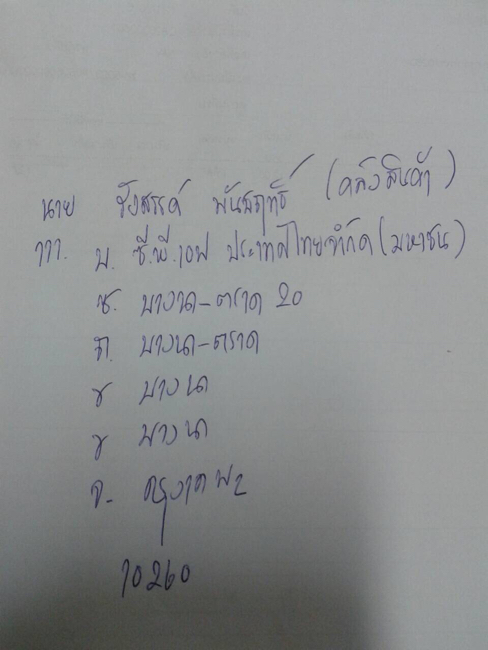 นาย รังสรรค์ พันธฤทธิ์ (คลังสินค้า)
777. บ. ซี.พี.เอฟ ประเทศไทยจำกัด (มหาชน)
ซ. บางนา-ตราด 20
ถ. บางนา-ตราด
ข บางนา
ข บางนา
จ. กรุงเทพฯ
10260